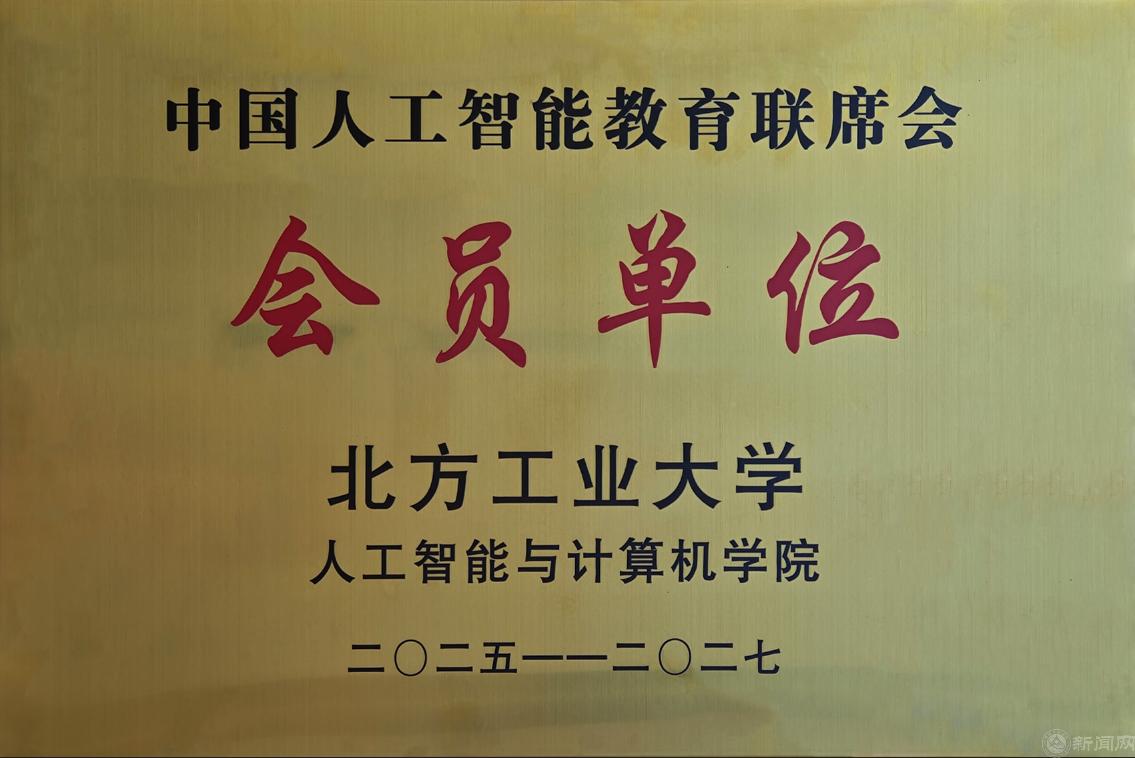 中国人工智能教育联席会
会员单位
北方工业大学
人工智能与计算机学院
二〇二五——二〇二七
新闻网